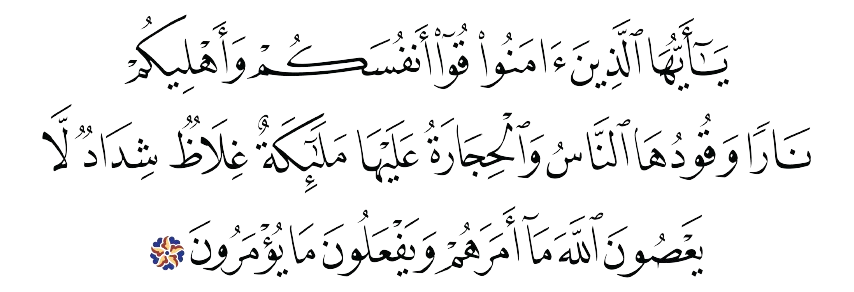 يَـٰٓأَيُّهَا ٱلَّذِينَ ءَامَنُوا۟ قُوٓا۟ أَنفُسَكُمْ وَأَهْلِيكُمْ
نَارًا وَقُودُهَا ٱلنَّاسُ وَٱلْحِجَارَةُ عَلَيْهَا مَلَـٰٓئِكَةٌ غِلَاظٌ شِدَادٌ لَّا
يَعْصُونَ ٱللَّهَ مَآ أَمَرَهُمْ وَيَفْعَلُونَ مَا يُؤْمَرُونَ